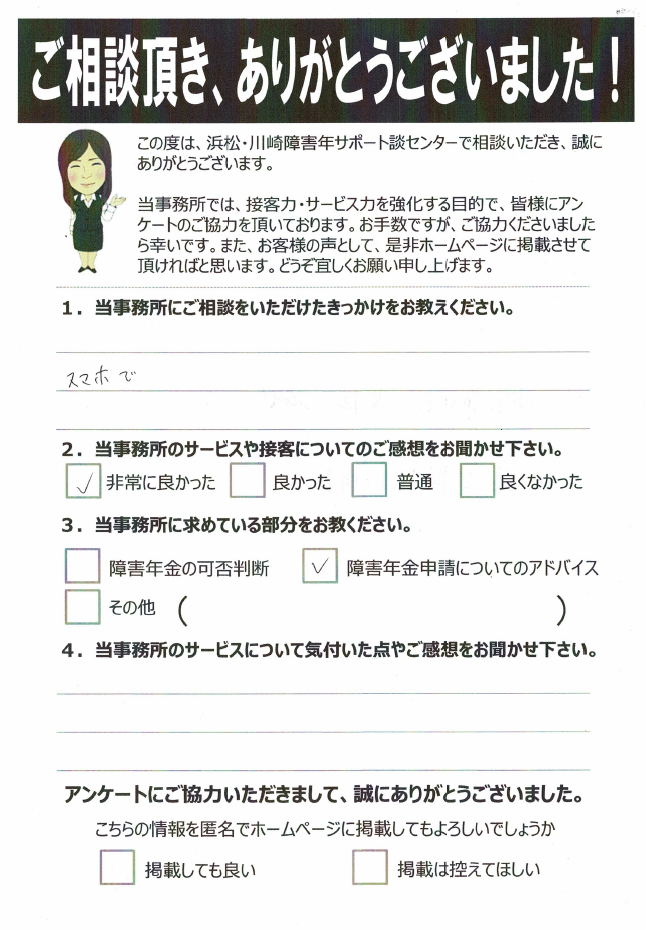 ご相談頂き、ありがとうございました！
この度は、浜松・川崎障害年サポート談センターで相談いただき、誠に
ありがとうございます。
当事務所では、接客力・サービス力を強化する目的で、皆様にアン
ケートのご協力を頂いております。お手数ですが、ご協力くださいました
ら幸いです。また、お客様の声として、是非ホームページに掲載させて
頂ければと思います。どうぞ宜しくお願い申し上げます。
1．当事務所にご相談をいただけたきっかけをお教えください。
スマホで
2．当事務所のサービスや接客についてのご感想をお聞かせ下さい。
✓ 非常に良かった 良かった 普通 良くなかった
3．当事務所に求めている部分をお教ください。
障害年金の可否判断 ✓ 障害年金申請についてのアドバイス
その他 （ ）
4．当事務所のサービスについて気付いた点やご感想をお聞かせ下さい。
アンケートにご協力いただきまして、誠にありがとうございました。
こちらの情報を匿名でホームページに掲載してもよろしいでしょうか
掲載しても良い 掲載は控えてほしい